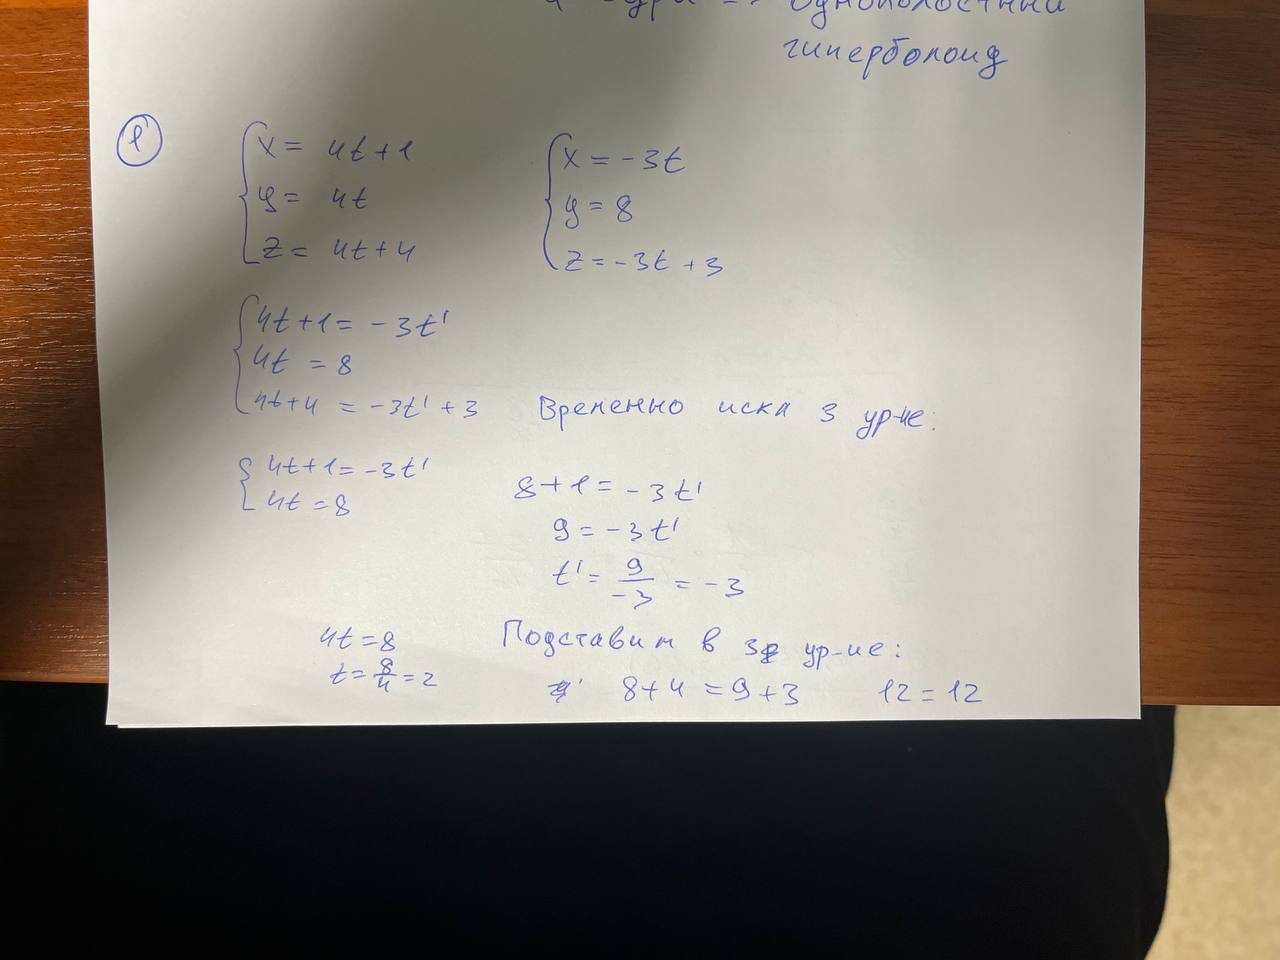 однополостный
гиперболоид
1
x = 4t+1
y = 4t
z = 4t+4
x = -3t
y = 8
z = -3t+3
4t+1 = -3t'
4t = 8
4t+4 = -3t'+3
Временно иска 3 ур-ие:
4t+1 = -3t'
4t = 8
8+1 = -3t'
9 = -3t'
t' = 9/-3 = -3
4t = 8
t = 8/4 = 2
Подставим в 3 ур-ие:
8+4 = 9+3 12 = 12